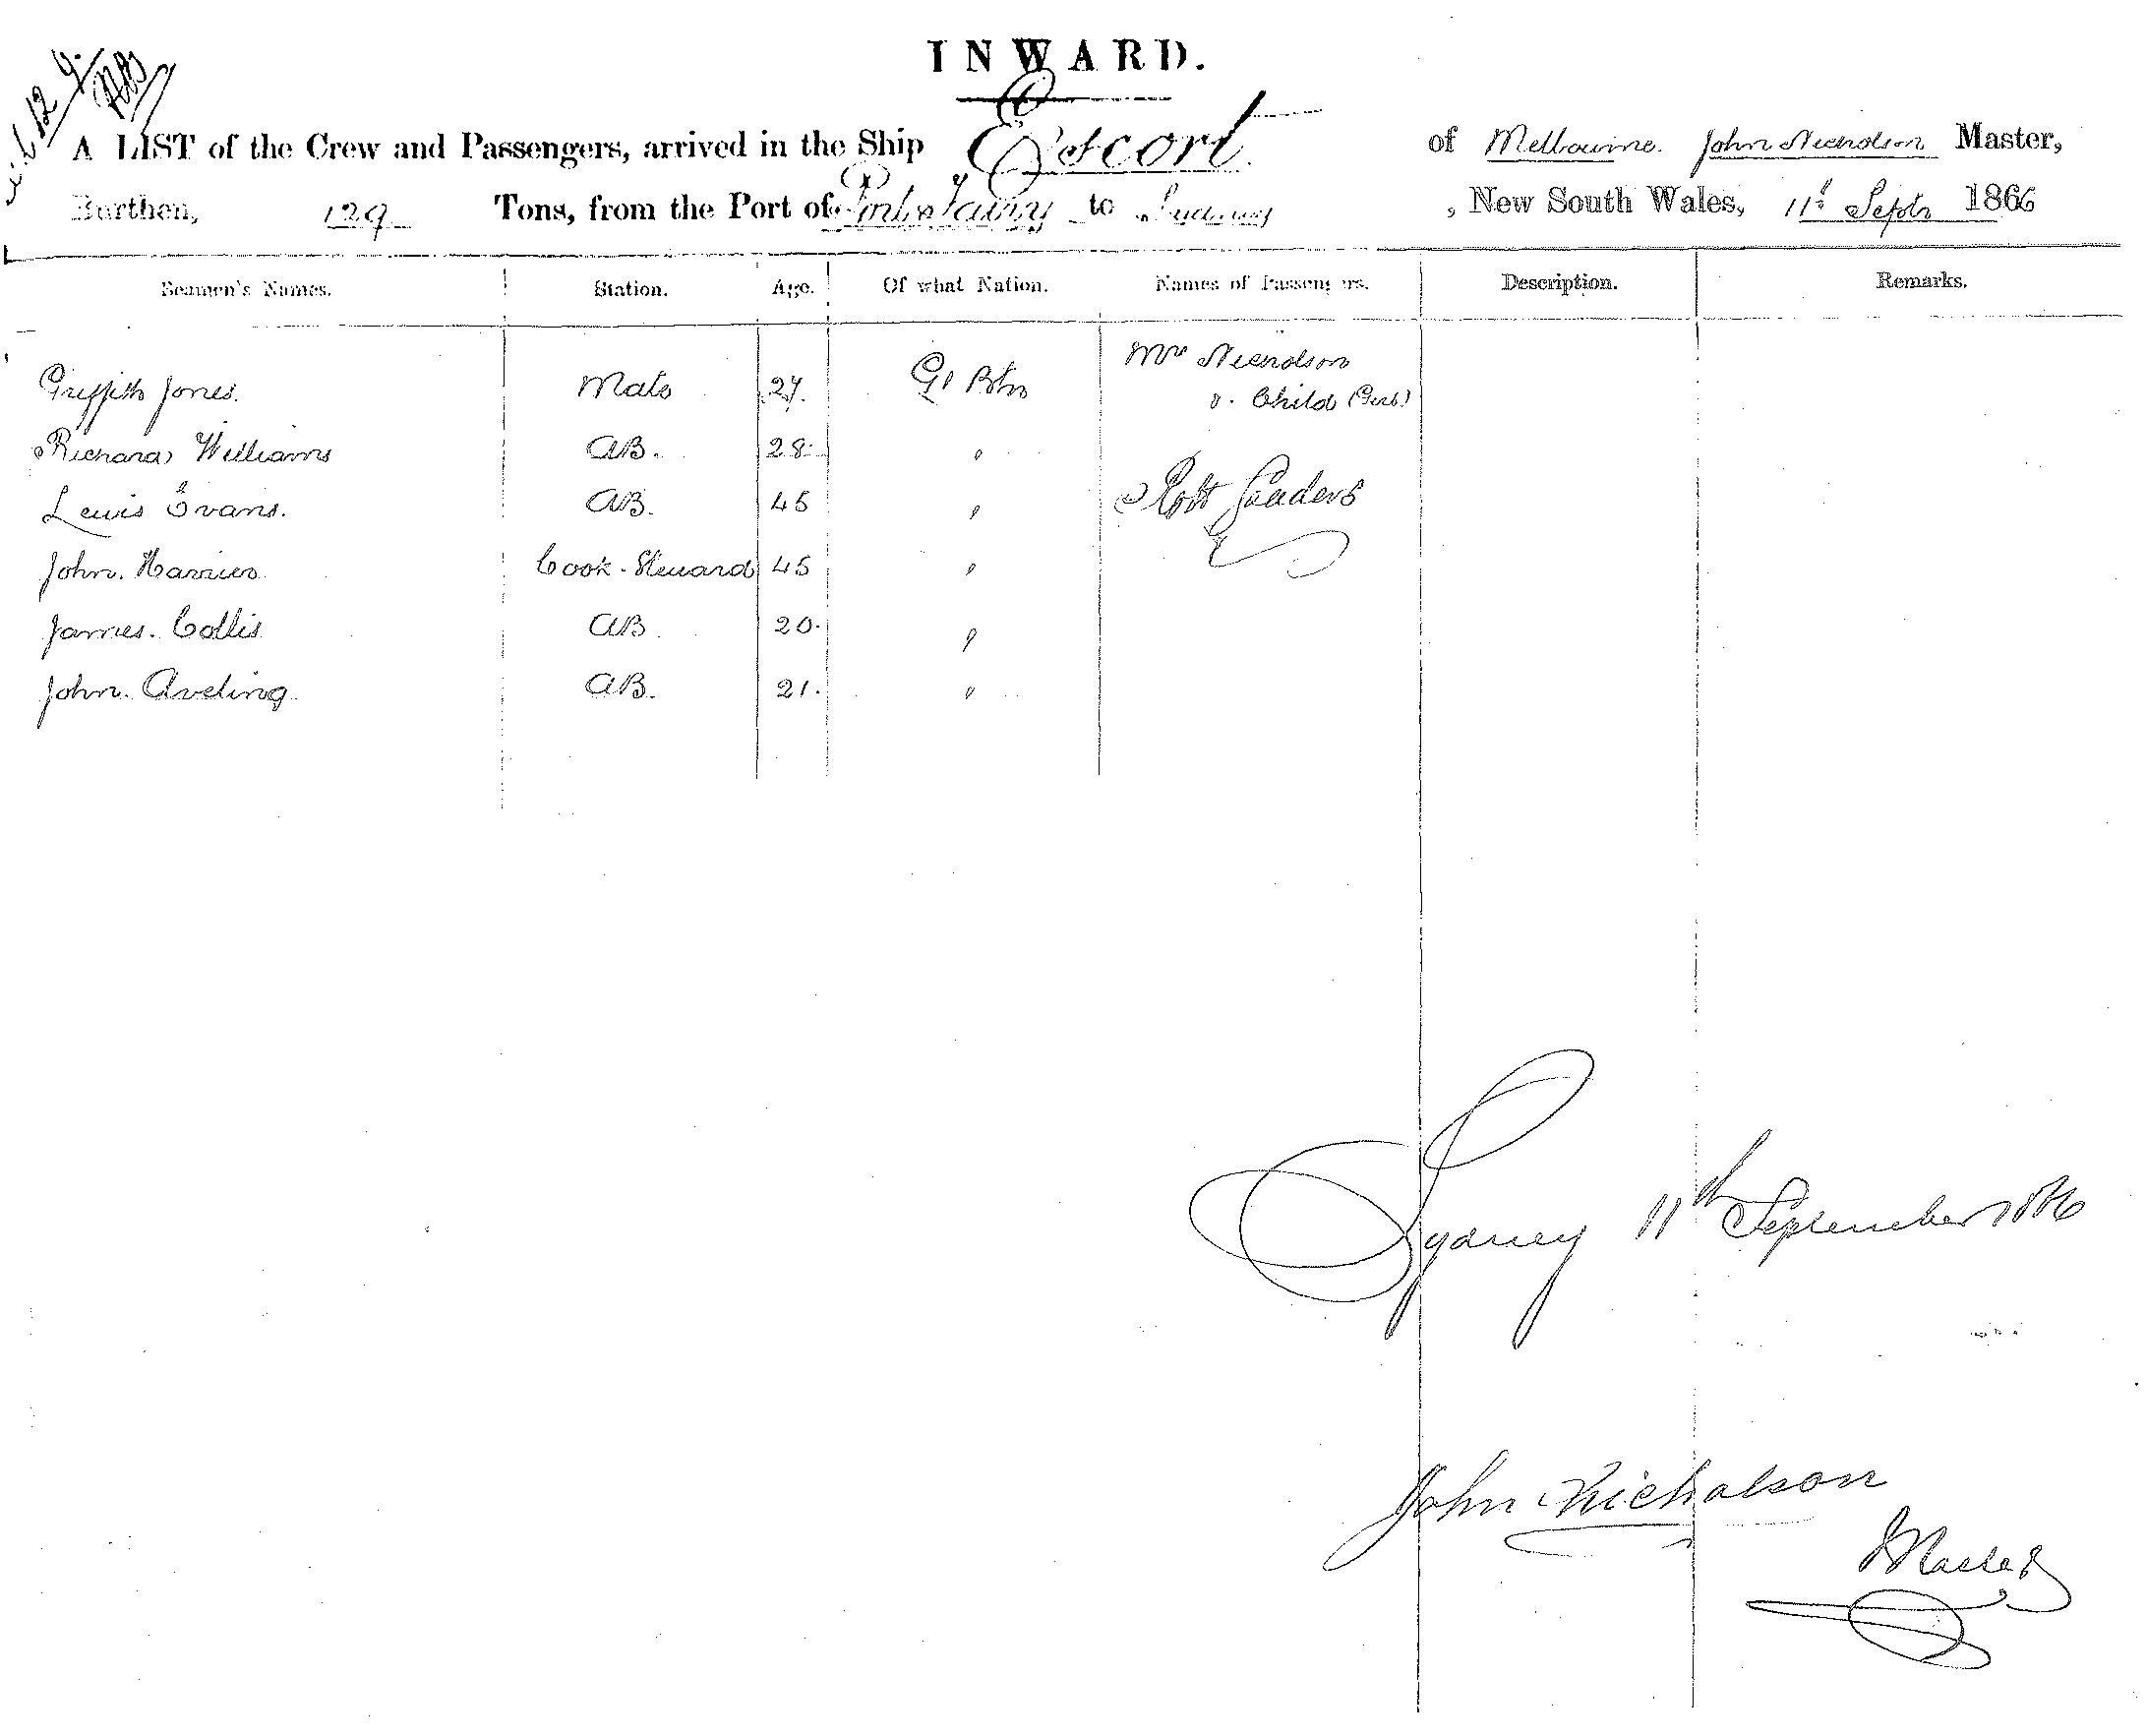 INWARD.
A LIST of the Crew and Passengers, arrived in the Ship Escort of Melbourne. John Nicholson Master,
Burthen, 129 Tons, from the Port of Port Fairy to Sydney , New South Wales, 11th Septr 1866
Seamen's Names. Station. Age. Of what Nation. Names of Passengers. Description. Remarks.
Mrs Nicholson
Griffith Jones. Mate 27. Gt Btn
" Child (Girl)
Richard Williams AB. 28 "
Lewis Evans. AB. 45 " Robt Sanders
John. Harries Cook-Steward 45 "
James. Collis AB 20. "
John. Aveling AB. 21. "
Sydney 11th September 1866
John Nicholson
Master